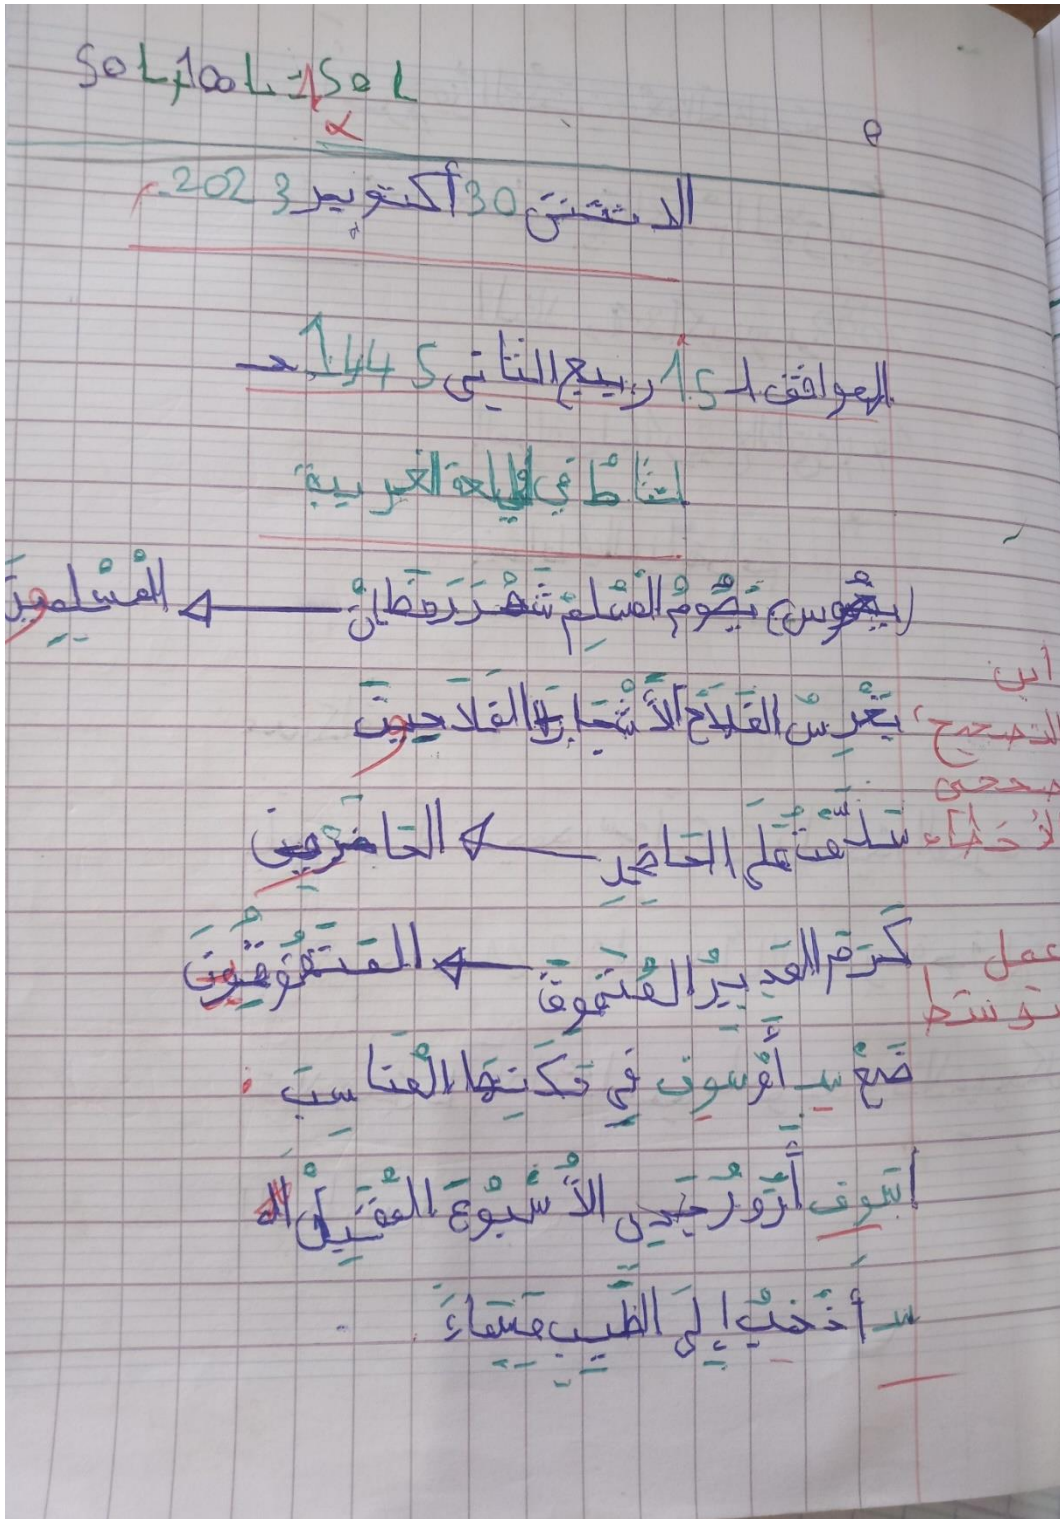 50L+100L=150L
الاثنين 30 أكتوبر 2023
الموافق لـ 15 ربيع الثاني 1445 هـ
نشاط في اللغة العربية
يَصُومُ الْمُسْلِمُ شَهْرَ رَمَضَانَ ← الْمُسْلِمِينَ
يَغْرِسُ الفَلَاحُ الْأَشْجَارَ الفَلَاحِينَ
سَلَّمْتُ عَلَى الحَاضِرِ ← الحَاضِرِينَ
كَرَّمَ المُدِيرُ المُتَفَوِّقَ ← المُتَفَوِّقُونَ
ضَعْ سَـ أَوْ سَوْفَ فِي مَكَانِهَا الْمُنَاسِبِ
سَوْفَ أَزُورُ جَدِّي الْأُسْبُوعَ الْمُقْبِلَ
سَـ أَذْهَبُ إِلَى الطَّبِيبِ مَسَاءً
أين
التصحيح؟
صححي
أخطاء
عمل
متوسط